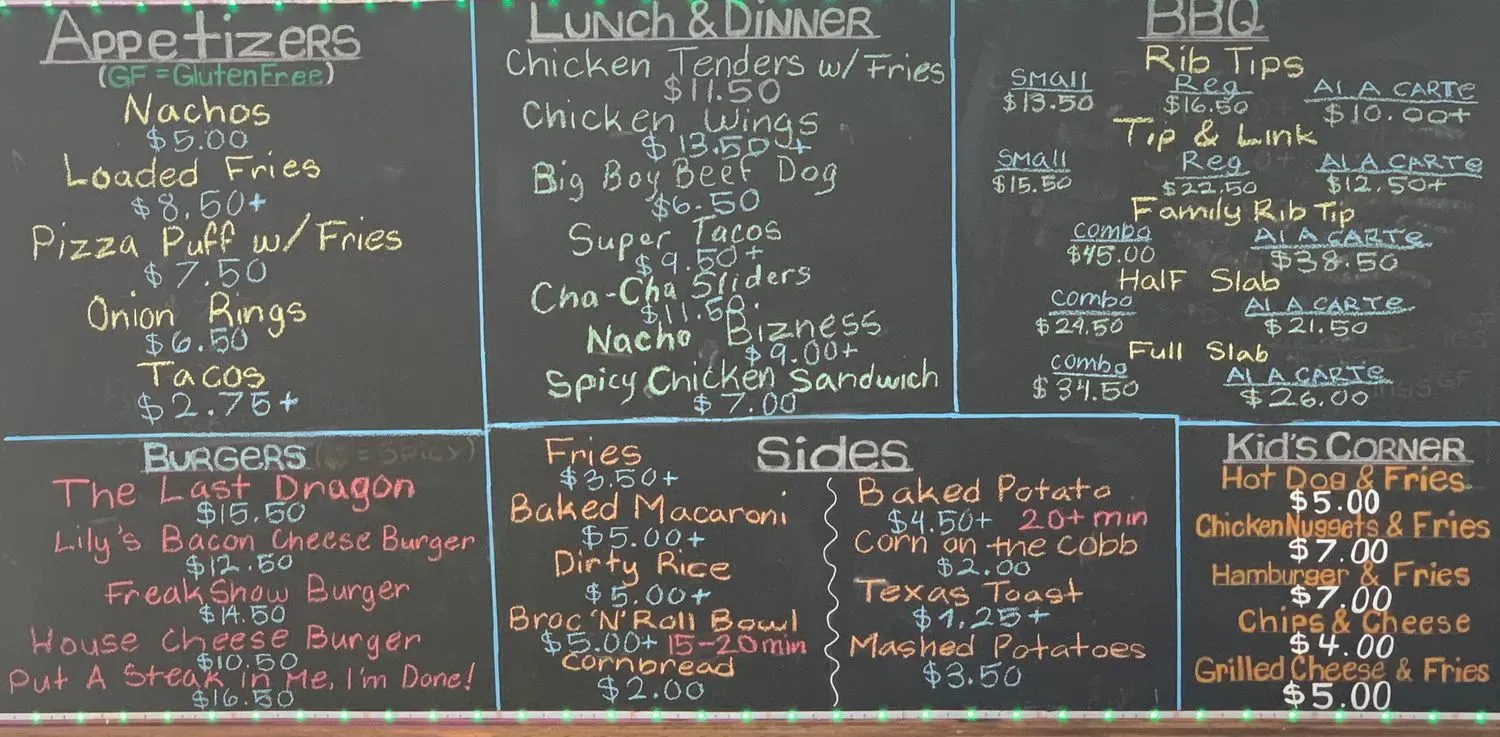 Appetizers
(GF = Gluten Free)
Nachos
$5.00
Loaded Fries
$8.50+
Pizza Puff w/ Fries
$7.50
Onion Rings
$6.50
Tacos
$2.75+
Lunch & Dinner
Chicken Tenders w/ Fries
$11.50
Chicken Wings
$13.50+
Big Boy Beef Dog
$6.50
Super Tacos
$9.50+
Cha-Cha Sliders
$11.50
Nacho Bizness
$9.00+
Spicy Chicken Sandwich
$7.00
BBQ
Rib Tips
Small Reg Al A CARTE
$13.50 $16.50 $10.00+
Tip & Link
Small Reg Al A CARTE
$15.50 $22.50 $12.50+
Family Rib Tip
Combo Al A CARTE
$45.00 $38.50
Half Slab
Combo Al A CARTE
$29.50 $21.50
Full Slab
Combo Al A CARTE
$34.50 $26.00
Burgers
= Spicy)
The Last Dragon
$15.50
Lily's Bacon Cheese Burger
$12.50
FreakShow Burger
$14.50
House Cheese Burger
$10.50
Put A Steak in Me, I'm Done!
$16.50
Sides
Fries
$3.50+
Baked Macaroni
$5.00+
Dirty Rice
$5.00+
Broc 'N' Roll Bowl
$5.00+ 15-20min
Cornbread
$2.00
Baked Potato
$4.50+ 20+ min
Corn on the Cobb
$2.00
Texas Toast
$1.25+
Mashed Potatoes
$3.50
Kid's Corner
Hot Dog & Fries
$5.00
Chicken Nuggets & Fries
$7.00
Hamburger & Fries
$7.00
Chips & Cheese
$4.00
Grilled Cheese & Fries
$5.00